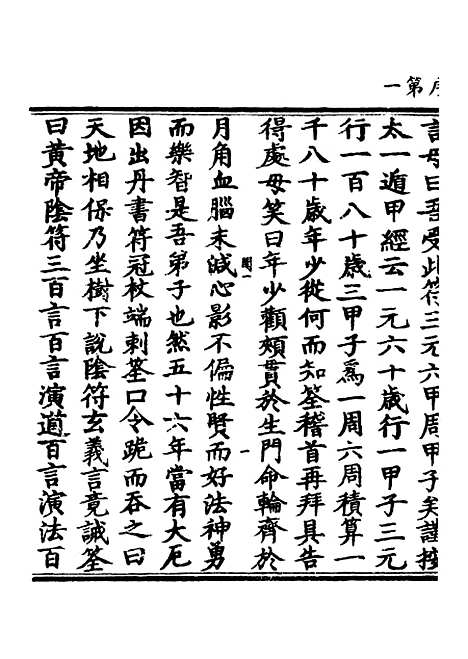 序第一
詰母曰吾受此符三元六甲周甲子矣謹按
太一遁甲經云一元六十歲行一甲子三元
行一百八十歲三甲子為一周六周積算一
千八十歲年少從何而知筌稽首再拜具告
得處母笑曰年少顴頰貫於生門命輪齊於
月角血腦未減心影不偏性賢而好法神勇
而樂智是吾弟子也然五十六年當有大厄
因出丹書符冠杖端刺筌口令跪而吞之曰
天地相保乃坐樹下說陰符玄義言竟誡筌
曰黃帝陰符三百言百言演道百言演法百